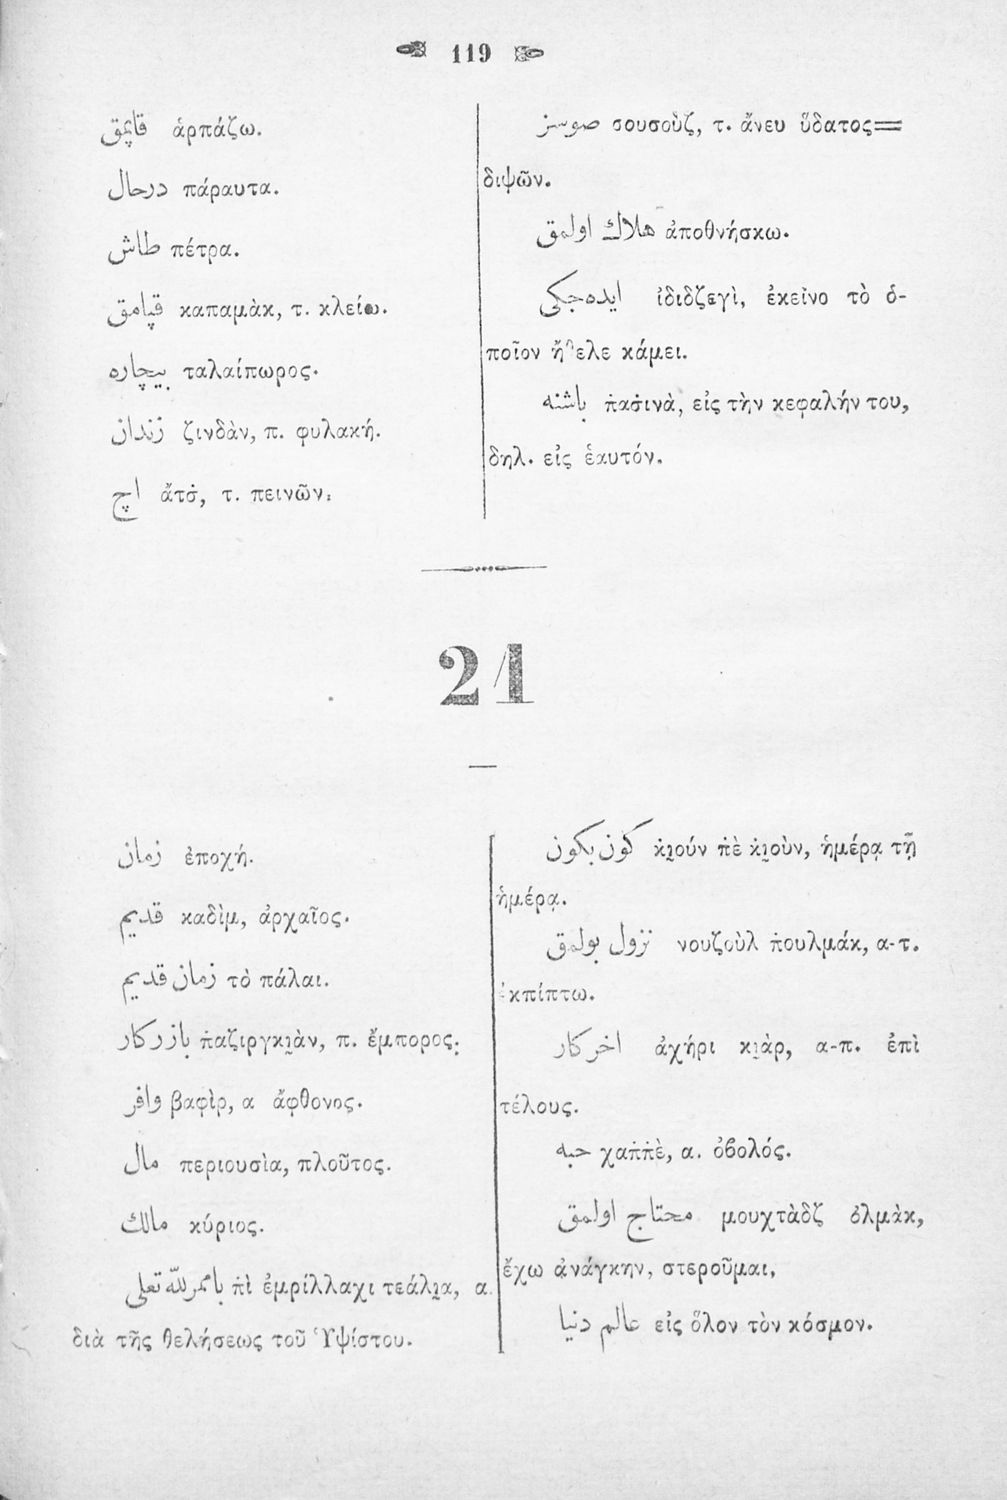 119
قاپمق ἁρπάζω.
درحال πάραυτα.
طاش πέτρα.
قپامق καπαμὰκ, τ. κλείω.
بیچاره ταλαίπωρος.
زندان ζινδὰν, π. φυλακή.
اچ ἄτσ̇, τ. πεινῶν.
صوسز σουσοὺζ, τ. ἄνευ ὕδατος=
διψῶν.
هلاك اولمق ἀποθνήσκω.
ایده‌جكی ἰδιδζεγὶ, ἐκεῖνο τὸ ὁ-
ποῖον ἤθελε κάμει.
باشنه π̇ασ̇ινὰ, εἰς τὴν κεφαλήν του,
δηλ. εἰς ἑαυτόν.
21
زمان ἐποχή.
قدیم καδὶμ, ἀρχαῖος.
زمان قدیم τὸ πάλαι.
بازركار π̇αζιργκι̯ὰν, π. ἔμπορος.
وافر βαφὶρ, α ἄφθονος.
مال περιουσὶα, πλοῦτος.
مالك κύριος.
بامرالله تعلی π̇ὶ ἐμρίλλαχι τεάλι̯α, α.
διὰ τῆς θελήσεως τοῦ Ὑψίστου.
كون بكون κ̇ι̯ούν π̇ὲ κ̇ι̯οὺν, ἡμέρᾳ τῇ
ἡμέρᾳ.
نزول بولمق νουζοὺλ π̇ουλμάκ, α-τ.
ἐκπίπτω.
اخركار ἀχήρι κι̯ὰρ, α-π. ἐπὶ
τέλους.
حبه χαπ̇π̇ὲ, α. ὀβολός.
محتاج اولمق μουχτὰδζ ὀλμὰκ,
ἔχω ἀνάγκην, στεροῦμαι,
عالم دنیا εἰς ὅλον τὸν κόσμον.